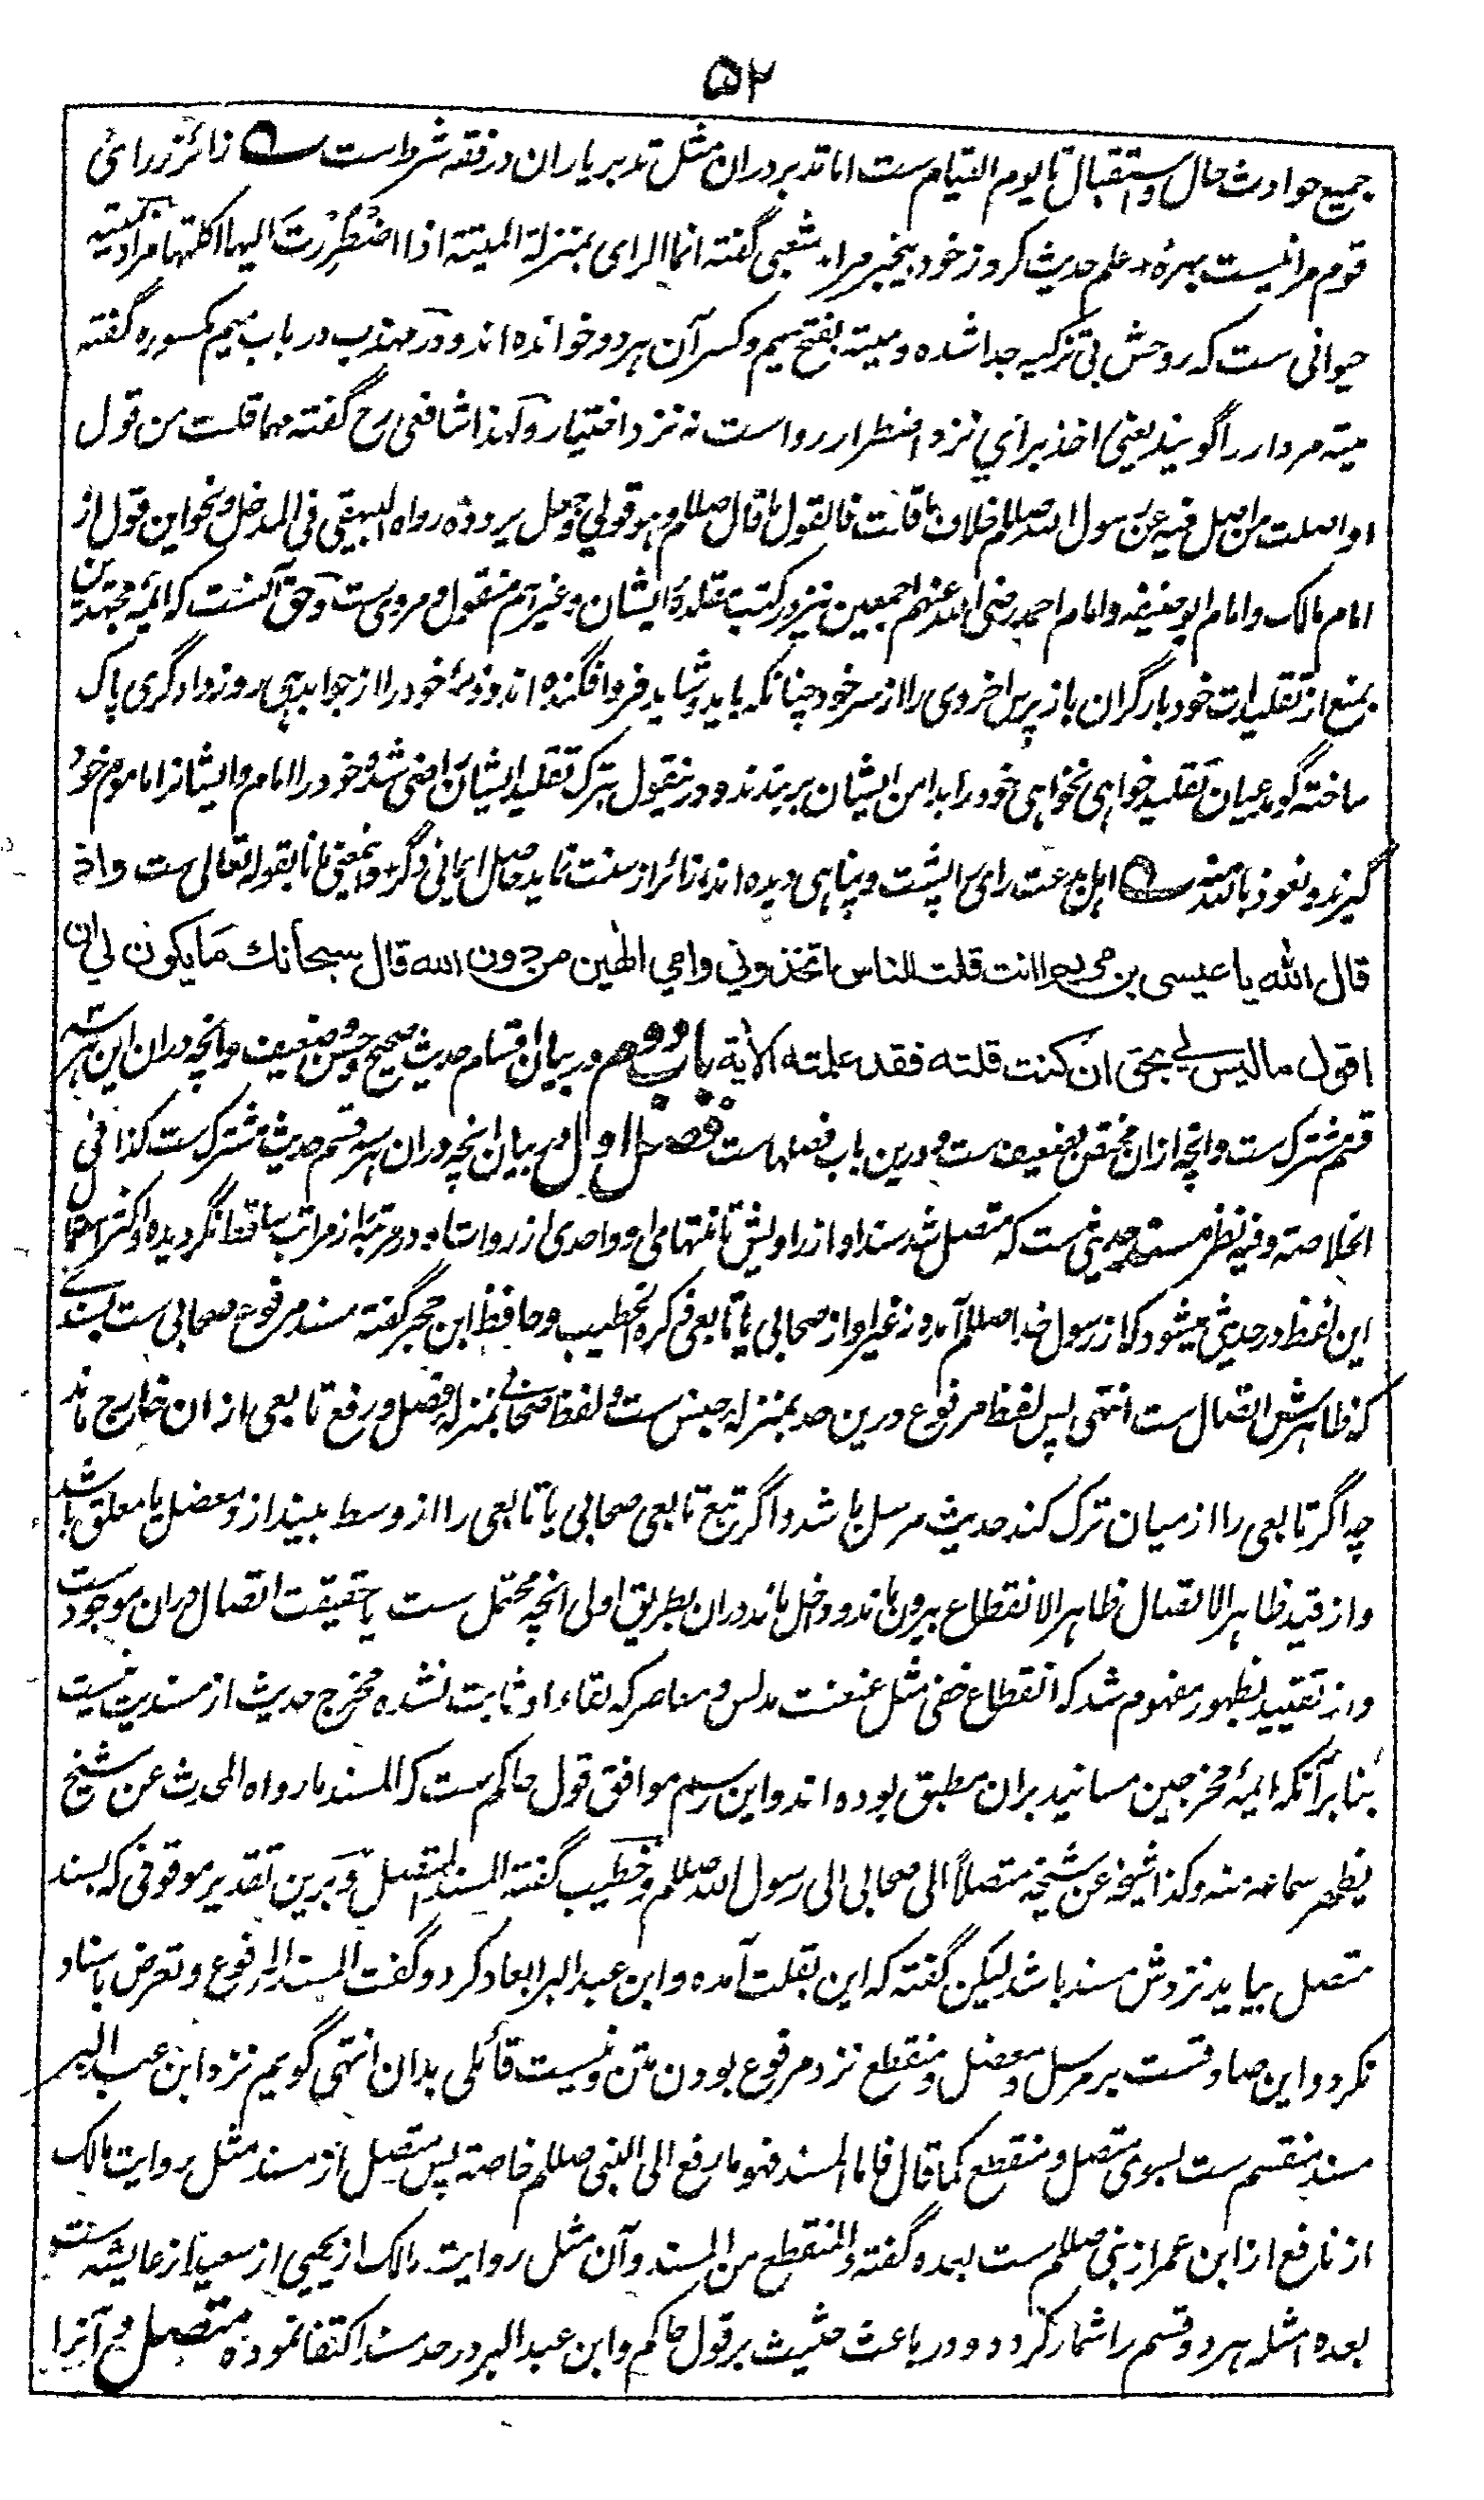 ۵۲
جمیع حوادث حال و استقبال تا یوم القیام ست اما تدبر دران مثل تدبر یاران در فقه شرط است زائر ز رائ
قوم مرا نیست بهرهٔ + علم حدیث کرد ز خود بیخبر مرا + شعبی گفته انما الرای بمنزلة المیتة اذا اضْطُرِرْتَ الیها اکلتها مراد میته
حیوانی ست که روحش بی تزکیه جدا شده و میته بفتح میم و کسر آن هر دو خوانده اند و در مهذب در باب میم مکسوره گفته
میته مردار را گویند یعنی اخذ برای نزد اضطرار روا ست نه نزد اختیار و لهذا شافعی رح گفته مهما قلت من قول
او اصلت من اصل فیه عن رسول الله صللم خلاف ما قلت فالقول ما قال صللم و هو قولی و جعل یردده رواه البیهقی فی المدخل و نحو این قول از
امام مالک و امام ابوحنیفه و امام احمد رضی الله عنهم اجمعین نیز در کتب مقلدهٔ ایشان و غیر هم منقول و مروی ست و حق آنست که ائمهٔ مجتهدین
بمنع از تقلیدات خود بار گران باز پرس اخروی را از سر خود چنانکه باید و شاید فرو افگنده اند و ذمهٔ خود را از جوابدهی روز دادگری پاک
ساخته گو مدعیان تقلید خواهی نخواهی خود را بدامن ایشان بربندند و در ینقول بترک تقلید ایشان راضی نشده خود را امام و ایشانرا ماموم خود
گیرند و نعوذ بالله منه اهل بدعت رای را پشت و پناهی دیده اند + زائر از سنت نماید حاصل ایمانی دگر + و اینمعنی مانا بقوله تعالی ست و اذ
قال الله یا عیسی بن مریم اانت قلت للناس اتخذونی وامی الٰهین من دون الله قال سبحانك مَا یکون لی ان
اقول ما لیس لی بحق ان کنت قلته فقد علمته الاٰیة باب دوم در بیان اقسام حدیث صحیح و حسن و ضعیف و آنچه دران این هر سه
قسم مشترک ست و آنچه ازان مختص بضعیف ست و درین باب فصلهاست فصل اول در بیان انچه دران هر سه قسم حدیث مشترک ست کذا فی
الخلاصة و فیه نظر مسند حدیثی ست که متصل شد سند او از راویش تا منتهای او و احدی از رواتش در مرتبهٔ از مراتب ساقط نگردیده و اکثر استعمال
این لفظ در حدیثی میشود که از رسول خدا صللم آمده نه غیر او از صحابی یا تابعی ذکره الخطیب و حافظ ابن حجر گفته مسند مرفوع صحابی ست بسندی
که ظاهرش اتصال ست انتهی پس لفظ مرفوع درین حد بمنزلهٔ جنس ست و لفظ صحابی بمنزلهٔ فصل و رفع تابعی ازان خارج ماند
چه اگر تابعی را از میان ترک کند حدیث مرسل باشد و اگر تبع تابعی صحابی یا تابعی را از وسط بیندازد معضل یا معلق باشد
و از قید ظاهر الاتصال ظاهر الانقطاع بیرون ماند و داخل ماند دران بطریق اولی انچه محتمل ست یا حقیقت اتصال دران موجود ست
و از تقیید بظهور مفهوم شد که انقطاع خفی مثل عنعنت مدلس و معاصر که لقاء او ثابت نشده مخرج حدیث از مسندیت نیست
بنابر آنکه ائمهٔ مخرجین مسانید بران مطبق بوده اند و این رسم موافق قول حاکم ست که المسند ما رواه المحدث عن شیخ
یظهر سماعه منه و کذا شیخه عن شیخه متصلاً الی صحابی الی رسول الله صللم و خطیب گفته المسند المتصل و برین تقدیر موقوفی که بسند
متصل بیاید نزدش مسند باشد لیکن گفته که این بقلت آمده و ابن عبد البر ابعاد کرد و گفت المسند المرفوع و تعرض باسناد
نکرد و این صادقست بر مرسل و معضل و منقطع نزد مرفوع بودن متن و نیست قائلی بدان انتهی گویم نزد ابن عبد البر
مسند منقسم ست بسوی متصل و منقطع کما قال فاما المسند فهو ما رفع الی النبی صللم خاصة پس متصل از مسند مثل روایت مالک
از نافع از ابن عمر از نبی صللم ست بعده گفته و المنقطع من المسند و آن مثل روایت مالک از یحیی از سعید از عایشه ست و
بعده امثلهٔ هر دو قسم را شمار کرده و در باعث حثیث بر قول حاکم و ابن عبد البر در حد مسند اکتفا نموده متصل و آنرا